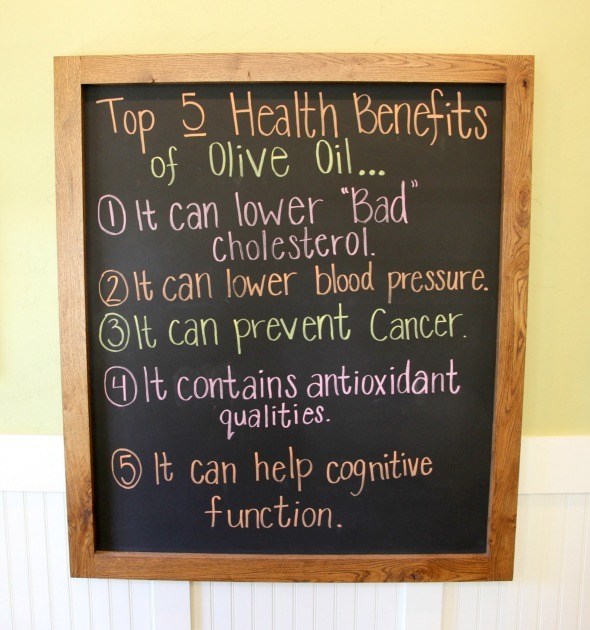 Top 5 Health Benefits
of Olive Oil...
① It can lower "Bad"
cholesterol.
② It can lower blood pressure.
③ It can prevent Cancer.
④ It contains antioxidant
qualities.
⑤ It can help cognitive
function.